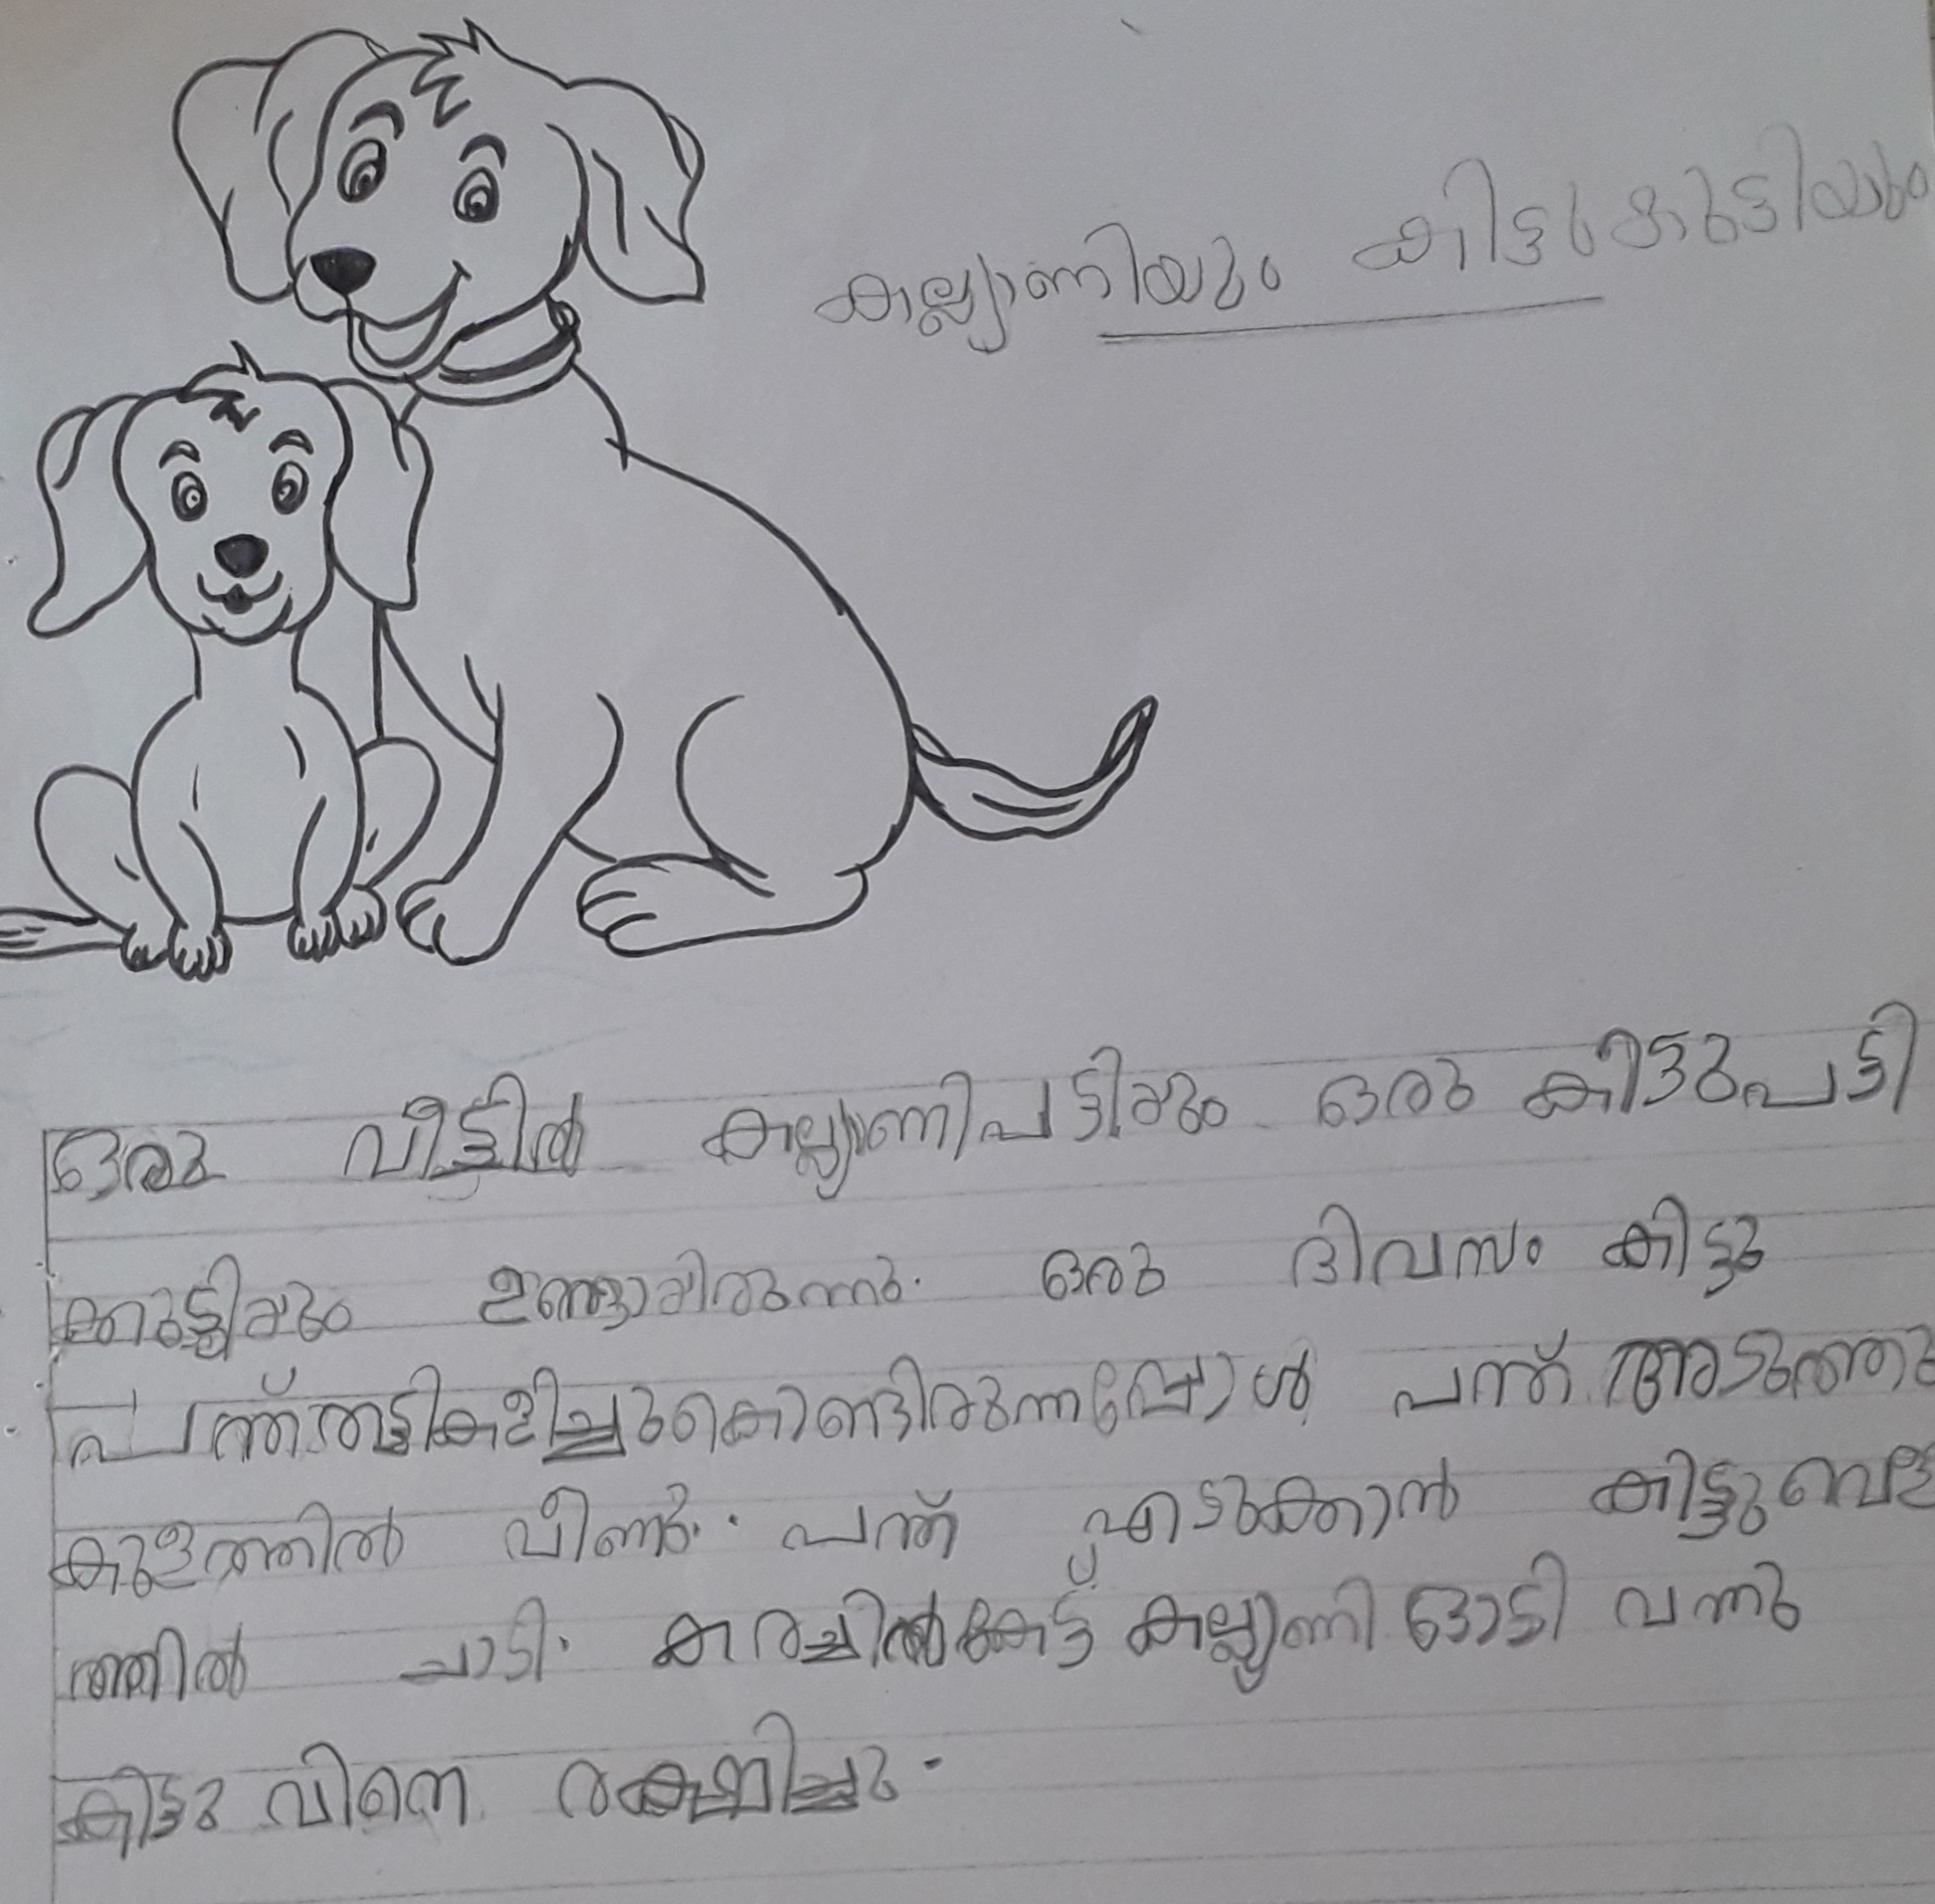 കല്ല്യാണിയും കിട്ടുകുട്ടിയും
ഒരു വീട്ടിൽ കല്ല്യാണിപട്ടിയും ഒരു കിട്ടുപട്ടി
ക്കുട്ടിയും ഉണ്ടായിരുന്നു. ഒരു ദിവസം കിട്ടു
പന്ത്തട്ടികളിച്ചുകൊണ്ടിരുന്നപ്പോൾ പന്ത് അടുത്തു
കുളത്തിൽ വീണു. പന്ത് എടുക്കാൻ കിട്ടു വെള്ള
ത്തിൽ ചാടി. കരച്ചിൽകേട്ട് കല്ല്യാണി ഓടി വന്നു
കിട്ടു വിനെ രക്ഷിച്ചു.